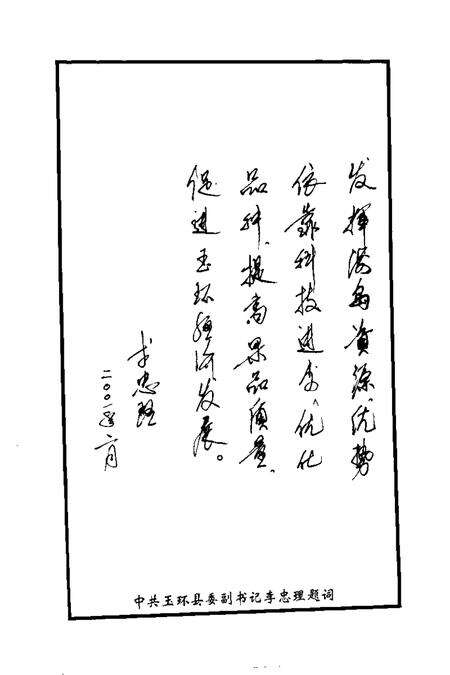 发挥海岛资源优势
依靠科技进步、优化
品种、提高果品质量、
促进玉环经济发展。
李忠理
二〇〇一年二月
中共玉环县委副书记李忠理题词